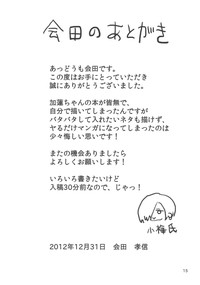 会田のあとがき
あっどうも会田です。
この度はお手にとっていただき
誠にありがとうございます。
加蓮ちゃんの本が皆無で、
自分で描いてしまったんですが
バタバタして入れたいネタも描けず、
ヤるだけマンガになってしまったのは
少々悔しい思いです！
またの機会ありましたら
よろしくお願いします！
いろいろ書きたいけど
入稿30分前なので、じゃっ！
小梅氏
2012年12月31日　会田　孝信
19